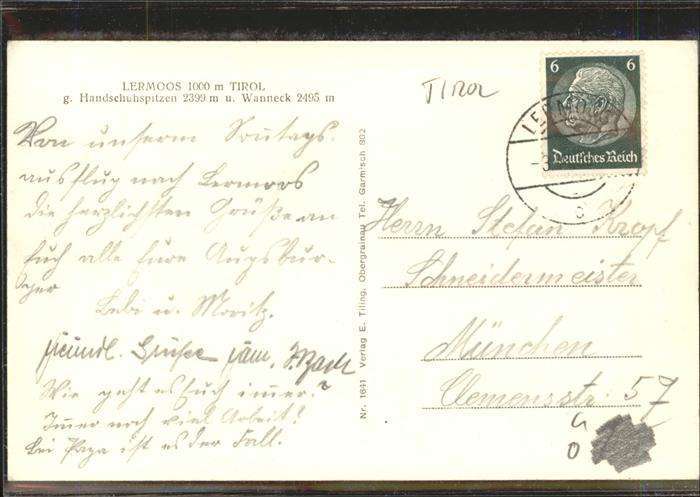 LERMOOS 1000 m TIROL
g. Handschuhspitzen 2399 m u. Wanneck 2495 m
Von unserm Sonntags-
ausflug nach Lermoos
die herzlichsten Grüße an
Euch alle Eure Augsbur-
ger
u. Moritz.
freundl. Grüße
Wie geht es Euch immer?
Immer noch viel Arbeit!
bei Papa ist es der Fall.
Nr. 1641 Verlag E. Tiling, Obergrainau Tel. Garmisch 802
TIROL
6 6
Deutsches Reich
Herrn Stefan Kropf
Schneidermeister
München
Clemensstr. 57